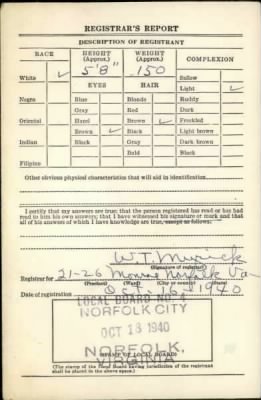 REGISTRAR'S REPORT
DESCRIPTION OF REGISTRANT
RACE HEIGHT (Approx.) WEIGHT (Approx.) COMPLEXION
5'8" 150
White ✓ Sallow
EYES HAIR Light ✓
Negro Blue Blonde Ruddy
Gray Red Dark
Oriental Hazel Brown ✓ Freckled
Brown ✓ Black Light brown
Indian Black Gray Dark brown
Bald Black
Filipino
Other obvious physical characteristics that will aid in identification
I certify that my answers are true; that the person registered has read or has had
read to him his own answers; that I have witnessed his signature or mark and that
all of his answers of which I have knowledge are true, except as follows:
W.T.
(Signature of registrar)
Registrar for 21-26 Monroe Norfolk Va
(Precinct) (Ward) (City or county) (State)
Date of registration Oct. 16-1940
LOCAL BOARD NO. 4
NORFOLK CITY
OCT 18 1940
NORFOLK,
VIRGINIA
(STAMP OF LOCAL BOARD)
(The stamp of the Local Board having jurisdiction of the registrant
shall be placed in the above space.)